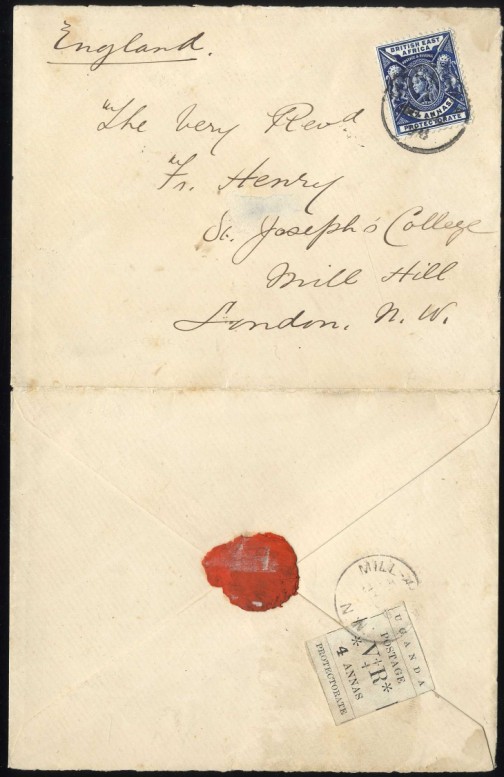 England.
BRITISH EAST
AFRICA
ANNAS
PROTECTORATE
The Very Revd.
Fr. Henry
St. Joseph's College
Mill Hill
London. N. W.
MILL-H
N
UGANDA
POSTAGE
*V+R*
4 ANNAS
PROTECTORATE